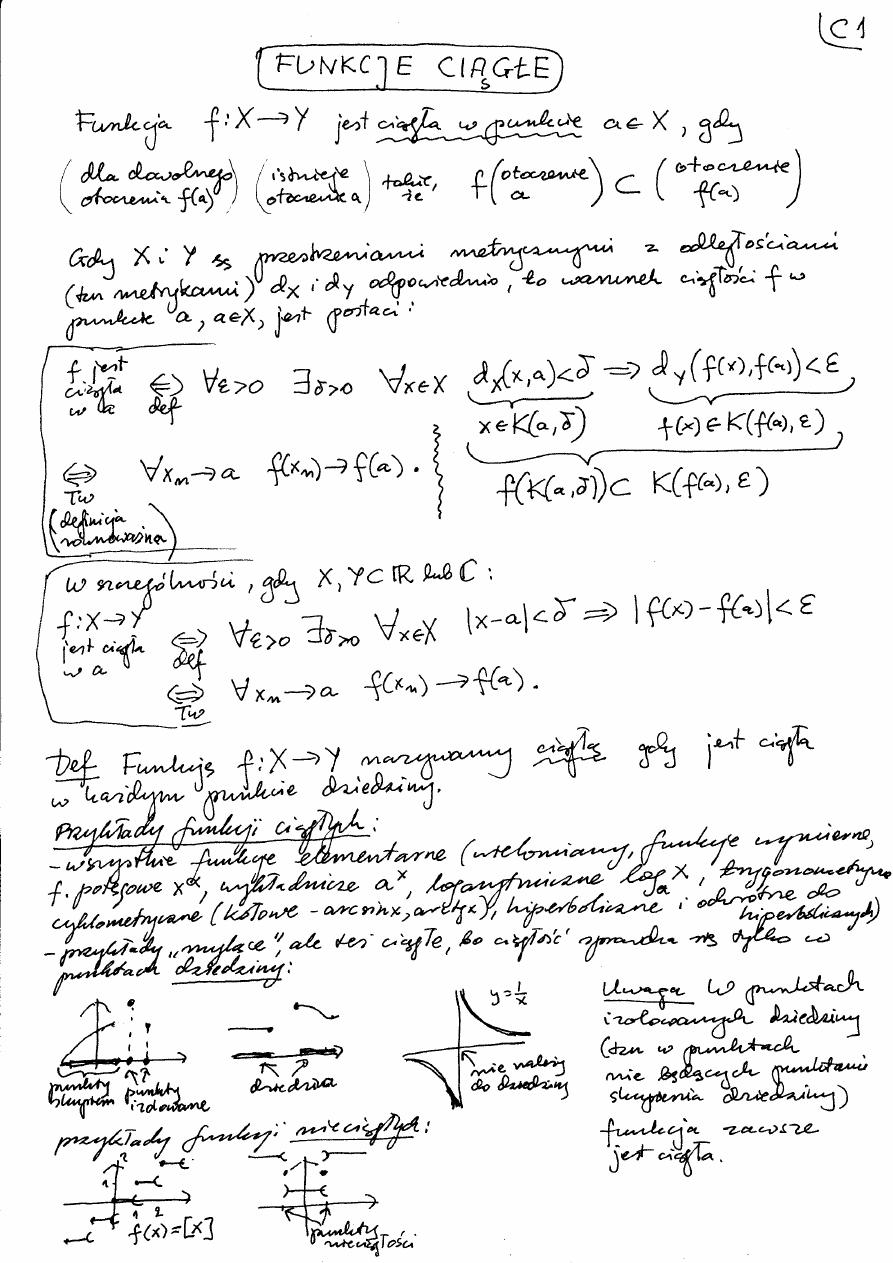 C1
FUNKCJE CIĄGŁE
Funkcja f: X → Y jest ciągła w punkcie a ∈ X, gdy
(dla dowolnego otoczenia f(a)) (istnieje otoczenie a) takie, że f(otoczenie a) ⊂ (otoczenie f(a))
Gdy X i Y są przestrzeniami metrycznymi z odległościami
(tzn metrykami) d_X i d_Y odpowiednio, to warunek ciągłości f w
punkcie a, a∈X, jest postaci:
f jest ciągła w a ⇔ def ∀ε>0 ∃δ>0 ∀x∈X d_X(x,a)<δ ⇒ d_Y(f(x),f(a))<ε
x∈K(a,δ) f(x)∈K(f(a),ε)
⇔ Tw ∀x_n→a f(x_n)→f(a). f(K(a,δ))⊂ K(f(a),ε)
(definicja równoważna)
W szczególności, gdy X, Y⊂ℝ lub ℂ:
f: X→Y jest ciągła w a ⇔ def ∀ε>0 ∃δ>0 ∀x∈X |x-a|<δ ⇒ |f(x)-f(a)|<ε
⇔ Tw ∀x_n→a f(x_n)→f(a).
Def Funkcję f: X→Y nazywamy ciągłą gdy jest ciągła
w każdym punkcie dziedziny.
Przykłady funkcji ciągłych:
- wszystkie funkcje elementarne (wielomiany, funkcje wymierne,
f. potęgowe x^α, wykładnicze a^x, logarytmiczne log_a x, trygonometryczne
cyklometryczne (kołowe - arcsinx, arctgx), hiperboliczne i odwrotne do hiperbolicznych)
- przykłady „mylące", ale też ciągłe, bo ciągłość sprawdza się tylko w
punktach dziedziny:
punkty skupienia
punkty izolowane
dziedzina
y=1/x
nie należy do dziedziny
Uwaga W punktach
izolowanych dziedziny
(tzn w punktach
nie będących punktami
skupienia dziedziny)
funkcja zawsze
jest ciągła.
przykłady funkcji nieciągłych:
2
1
1 2
f(x)=[x]
punkty nieciągłości